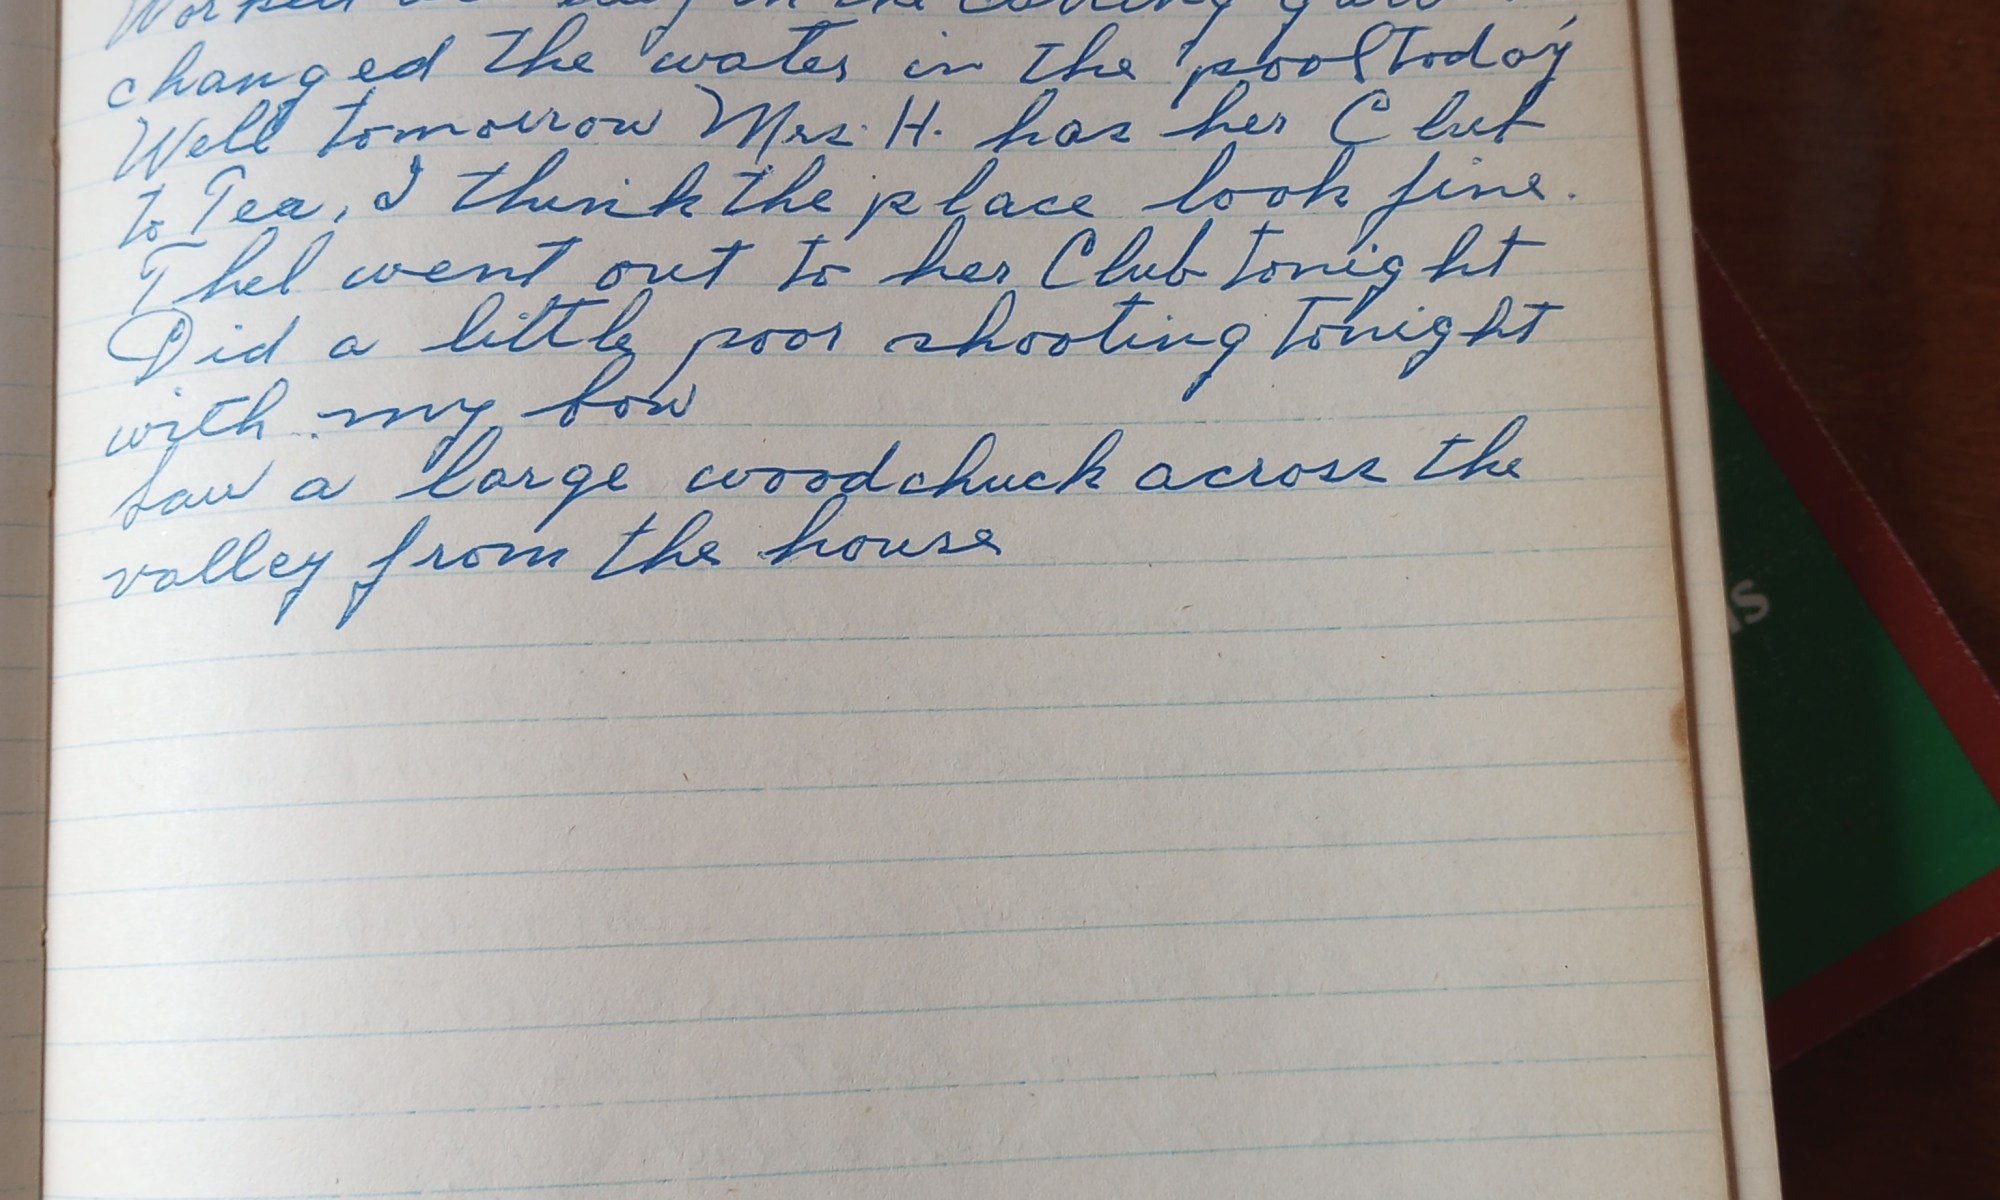 Worked all day in the cutting garden
changed the water in the pool today
Well tomorrow Mrs. H. has her Club
to Tea, I think the place look fine.
Thel went out to her Club tonight
Did a little poor shooting tonight
with my bow
Saw a large woodchuck across the
valley from the house
as